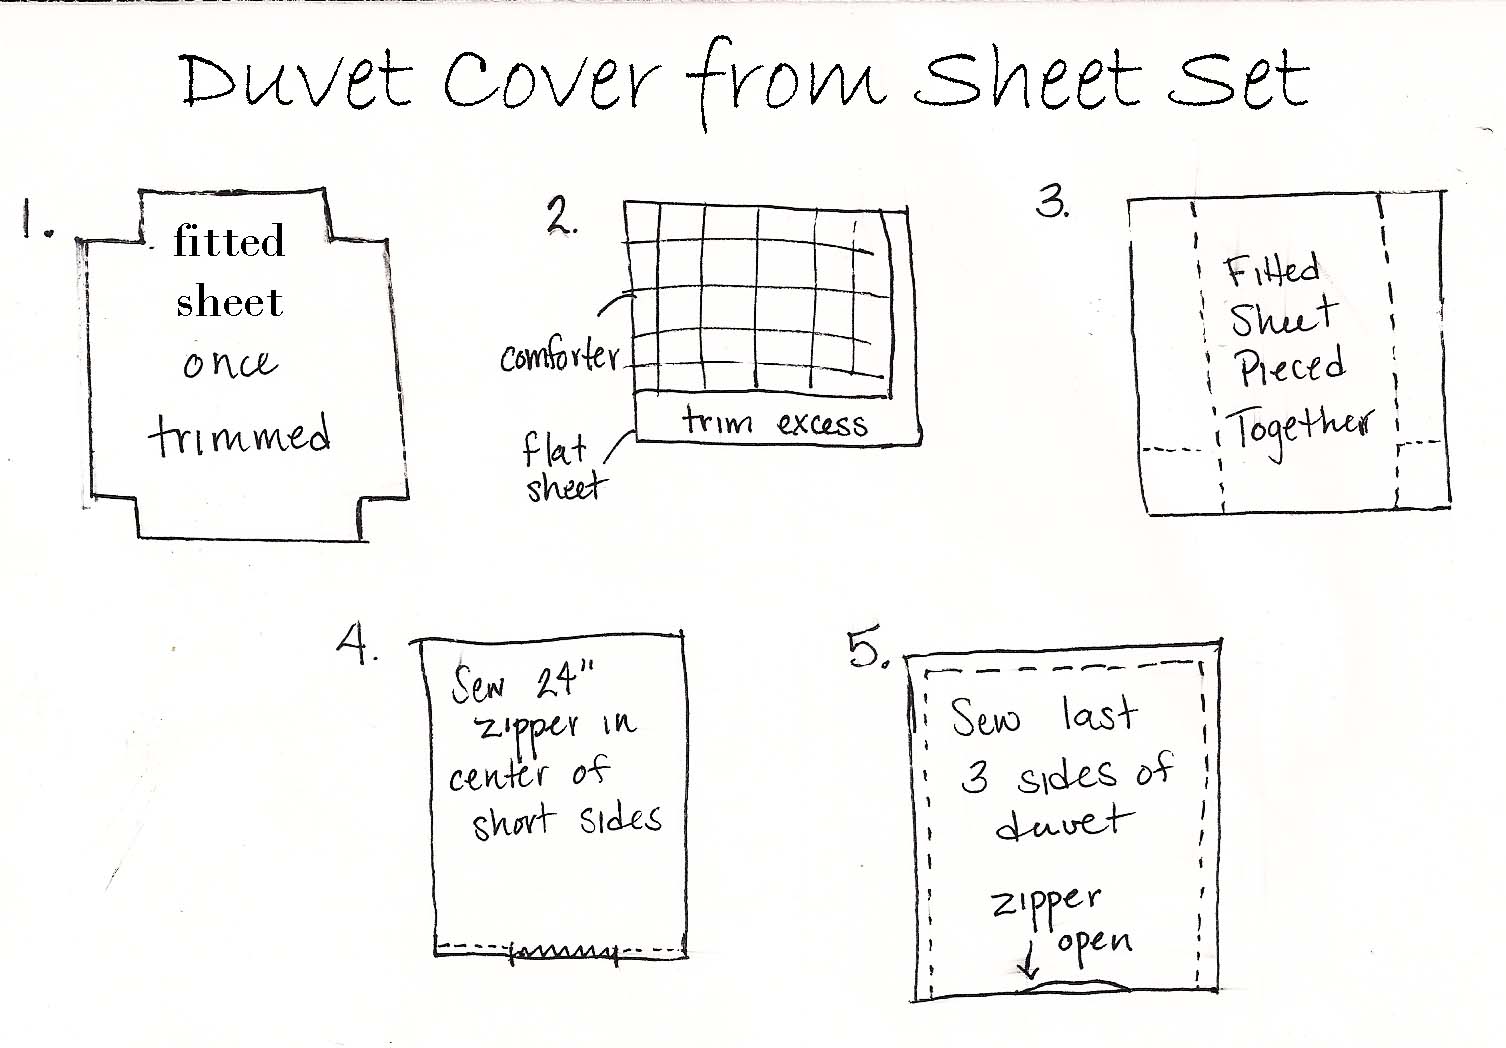 Duvet Cover from Sheet Set
1.
fitted
sheet
once
trimmed
2.
comforter
trim excess
flat
sheet
3.
Fitted
Sheet
Pieced
Together
4.
Sew 24"
zipper in
center of
short sides
5.
Sew last
3 sides of
duvet
zipper
open